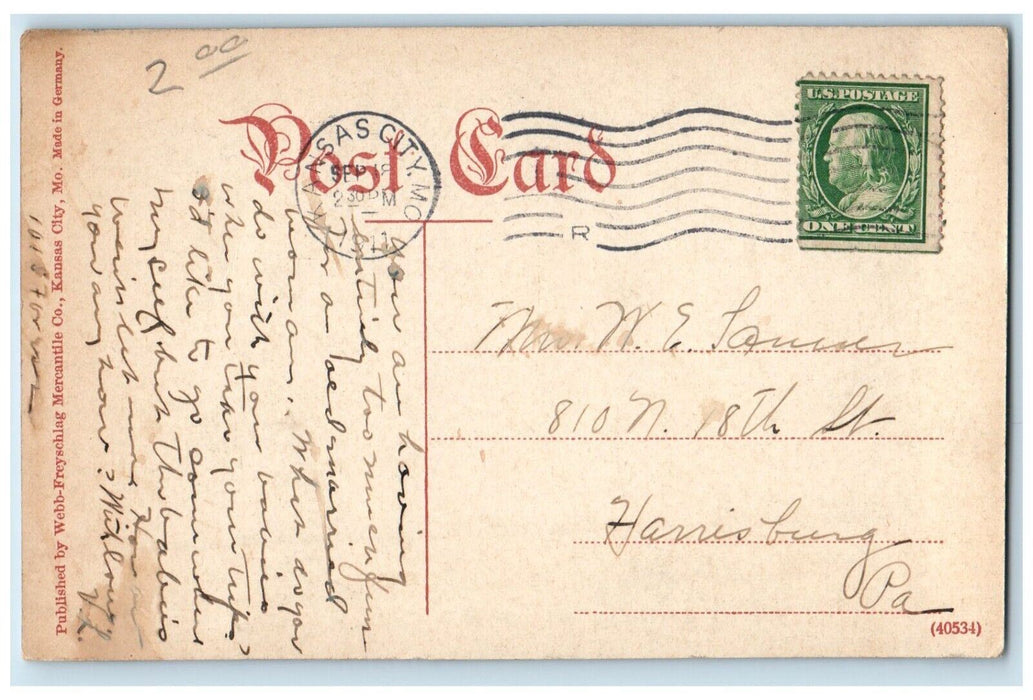 2 00
Post Card
KANSAS CITY, MO.
SEP 18
2 30 PM
1911
R
U.S. POSTAGE
ONE CENT
W. E.
810 N. 18th St.
Harrisburg
Pa
(40534)
You are having
entirely too much fun
for an old married
woman. What do you
do with your babies
when you take your trips?
I'd like to go somewhere
myself but the babies
won't let me. How are
you any how? With love
Published by Webb-Freyschlag Mercantile Co., Kansas City, Mo. Made in Germany.